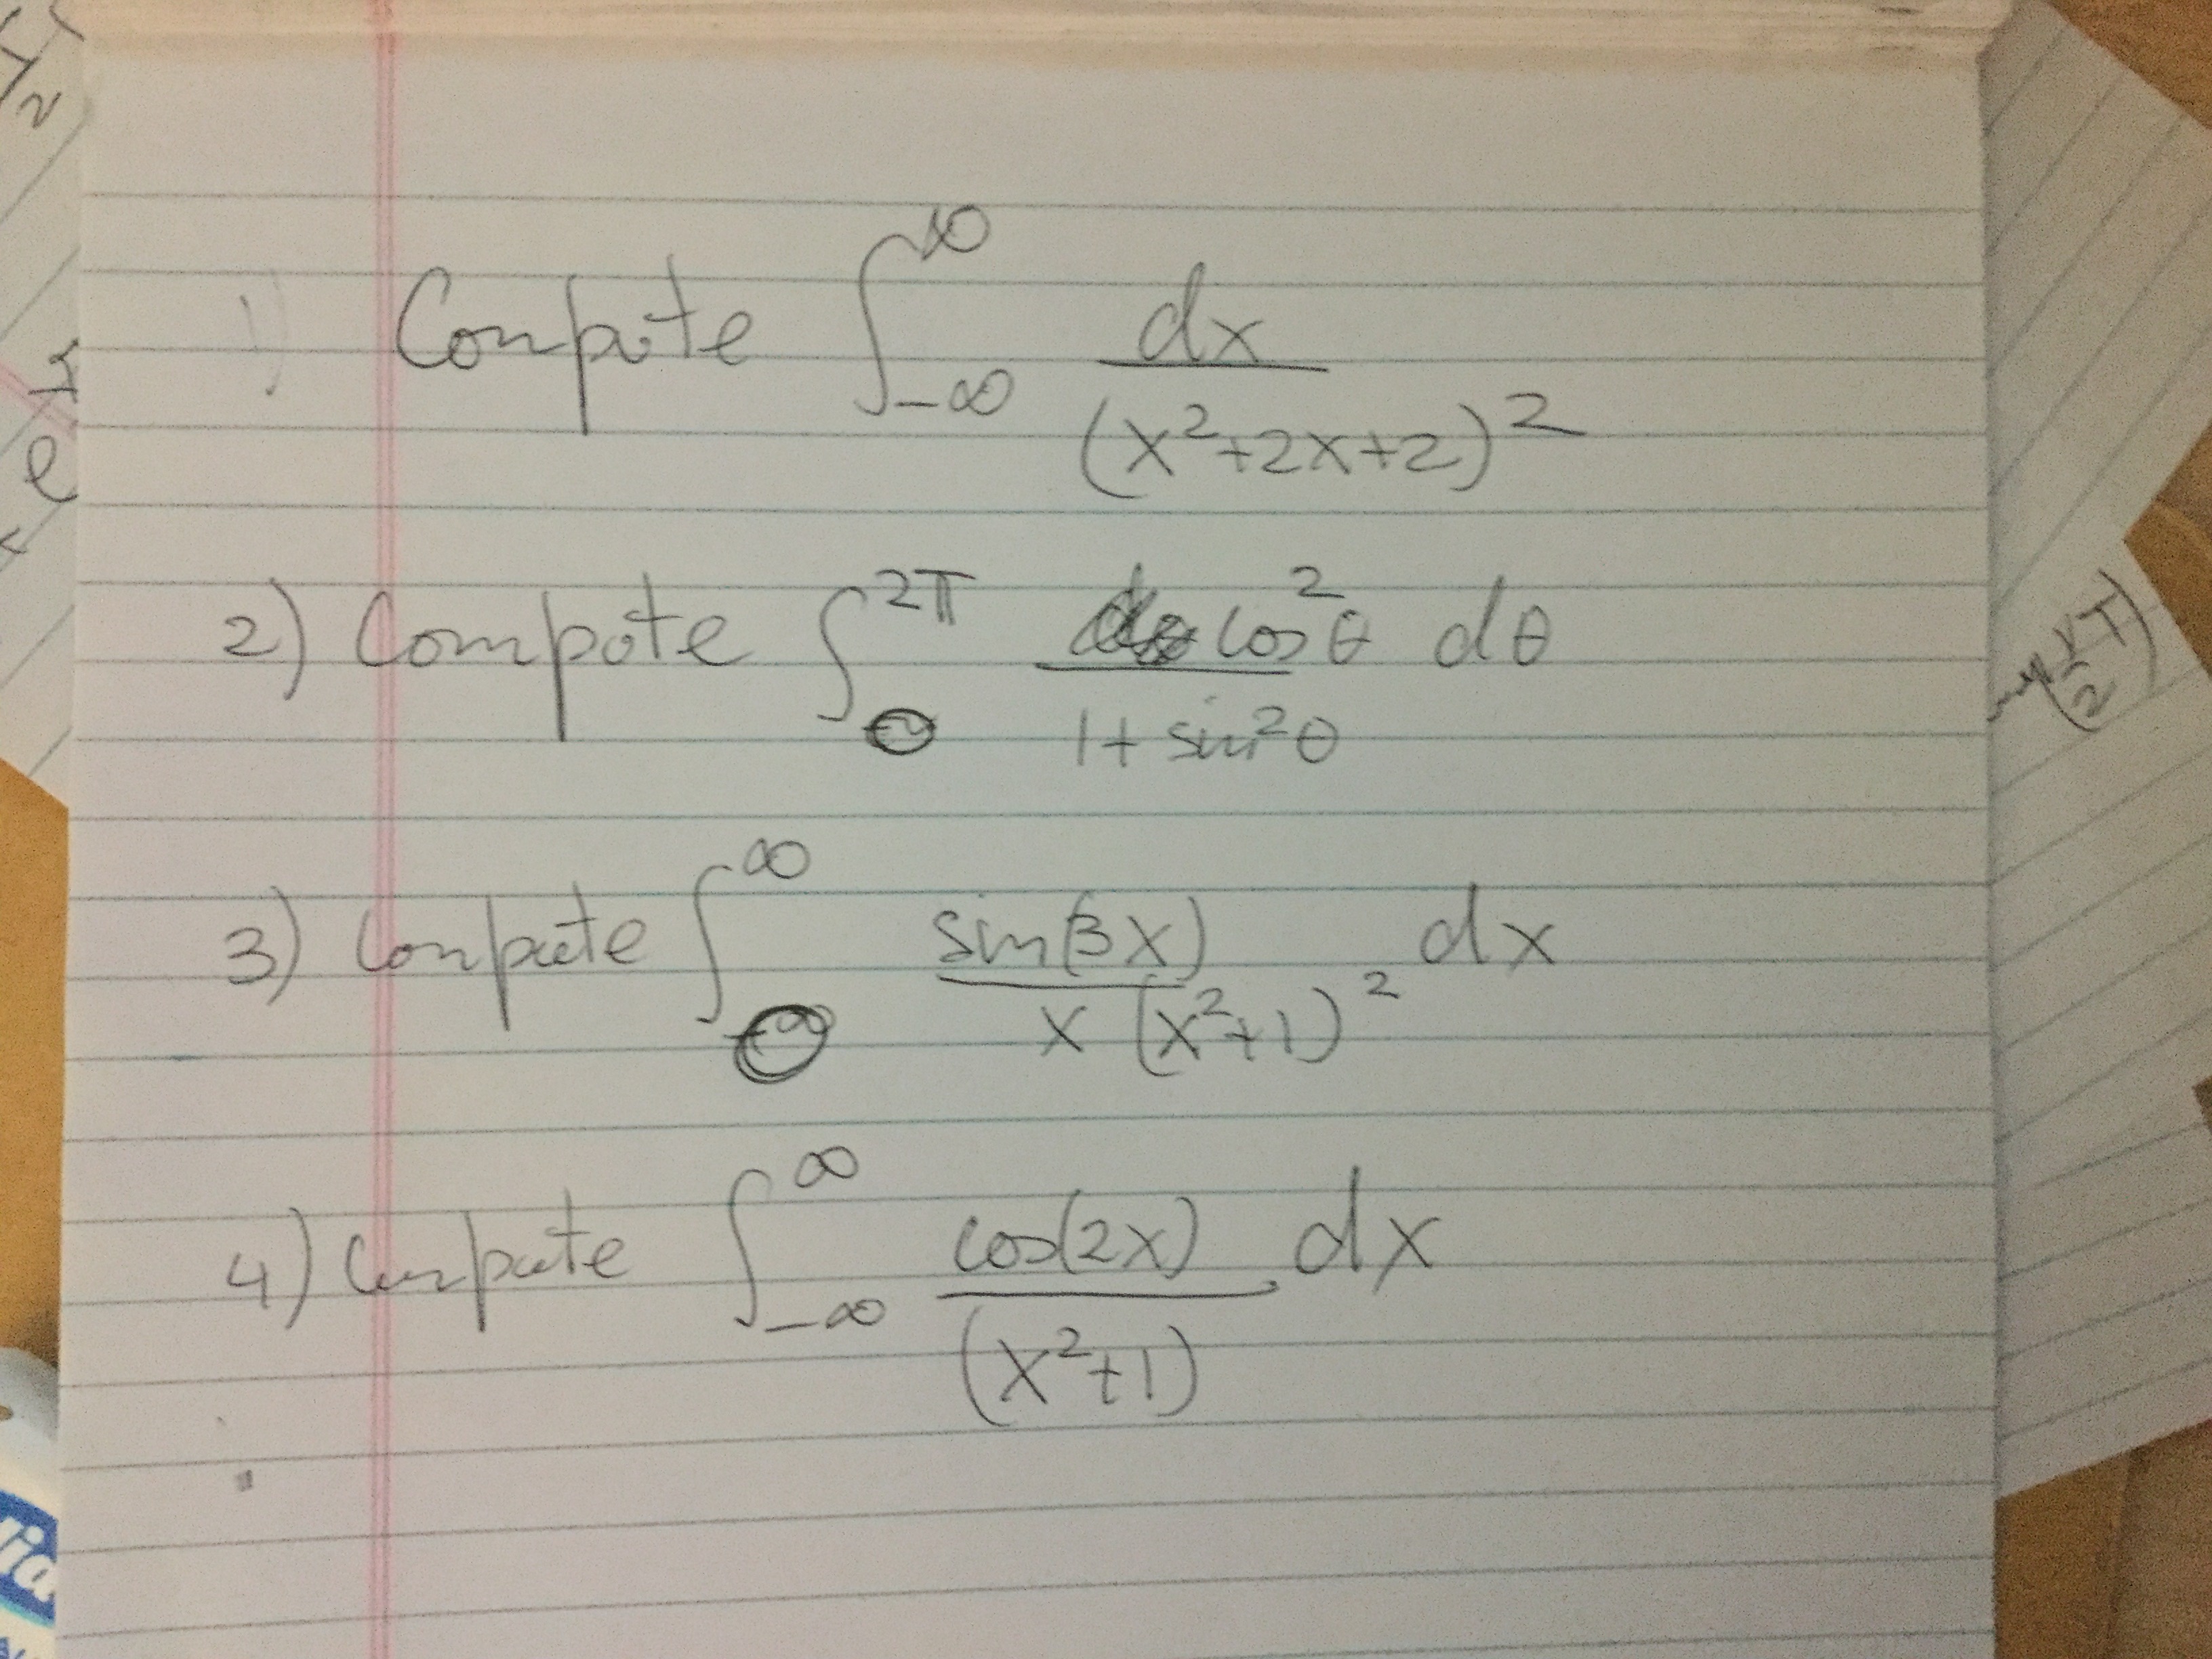 1) Compute ∫_{-∞}^{∞} dx / (x²+2x+2)²
2) Compute ∫_{0}^{2π} cos²θ dθ / 1+sin²θ
3) Compute ∫_{0}^{∞} sin(3x) / x(x²+1)² dx
4) Compute ∫_{-∞}^{∞} cos(2x) / (x²+1) dx